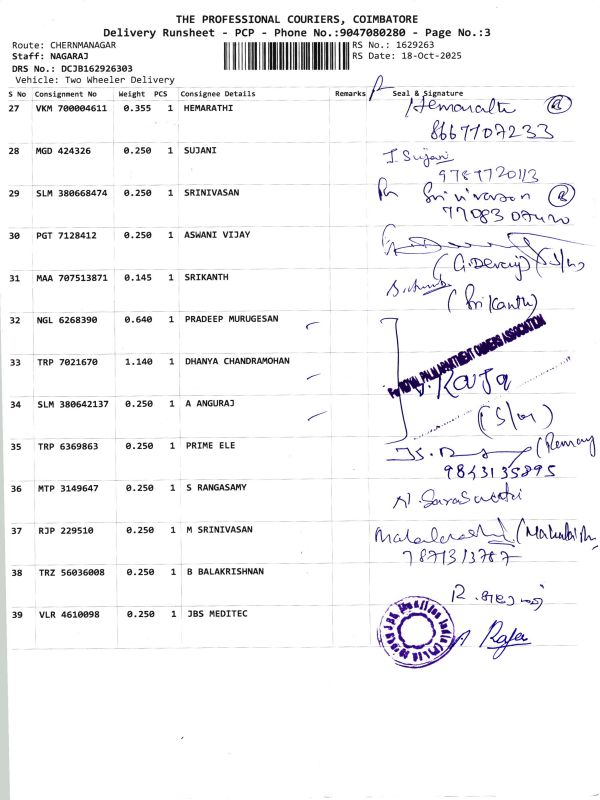 THE PROFESSIONAL COURIERS, COIMBATORE
Delivery Runsheet - PCP - Phone No.:9047080280 - Page No.:3
Route: CHERNMANAGAR RS No.: 1629263
Staff: NAGARAJ RS Date: 18-Oct-2025
DRS No.: DCJB162926303
Vehicle: Two Wheeler Delivery
S No Consignment No Weight PCS Consignee Details Remarks Seal & Signature
27 VKM 700004611 0.355 1 HEMARATHI Hemarathi
8667707233
28 MGD 424326 0.250 1 SUJANI J. Sujani
9787720113
29 SLM 380668474 0.250 1 SRINIVASAN Srinivasan
30 PGT 7128412 0.250 1 ASWANI VIJAY
(G.Devaraj)
31 MAA 707513871 0.145 1 SRIKANTH
(Srikanth)
32 NGL 6268390 0.640 1 PRADEEP MURUGESAN
For ROYAL PALM APARTMENT OWNERS ASSOCIATION
33 TRP 7021670 1.140 1 DHANYA CHANDRAMOHAN
Raja
34 SLM 380642137 0.250 1 A ANGURAJ
35 TRP 6369863 0.250 1 PRIME ELE
9843135895
36 MTP 3149647 0.250 1 S RANGASAMY N. Saraswathi
37 RJP 229510 0.250 1 M SRINIVASAN
7871313787
38 TRZ 56036008 0.250 1 B BALAKRISHNAN
39 VLR 4610098 0.250 1 JBS MEDITEC
Raja